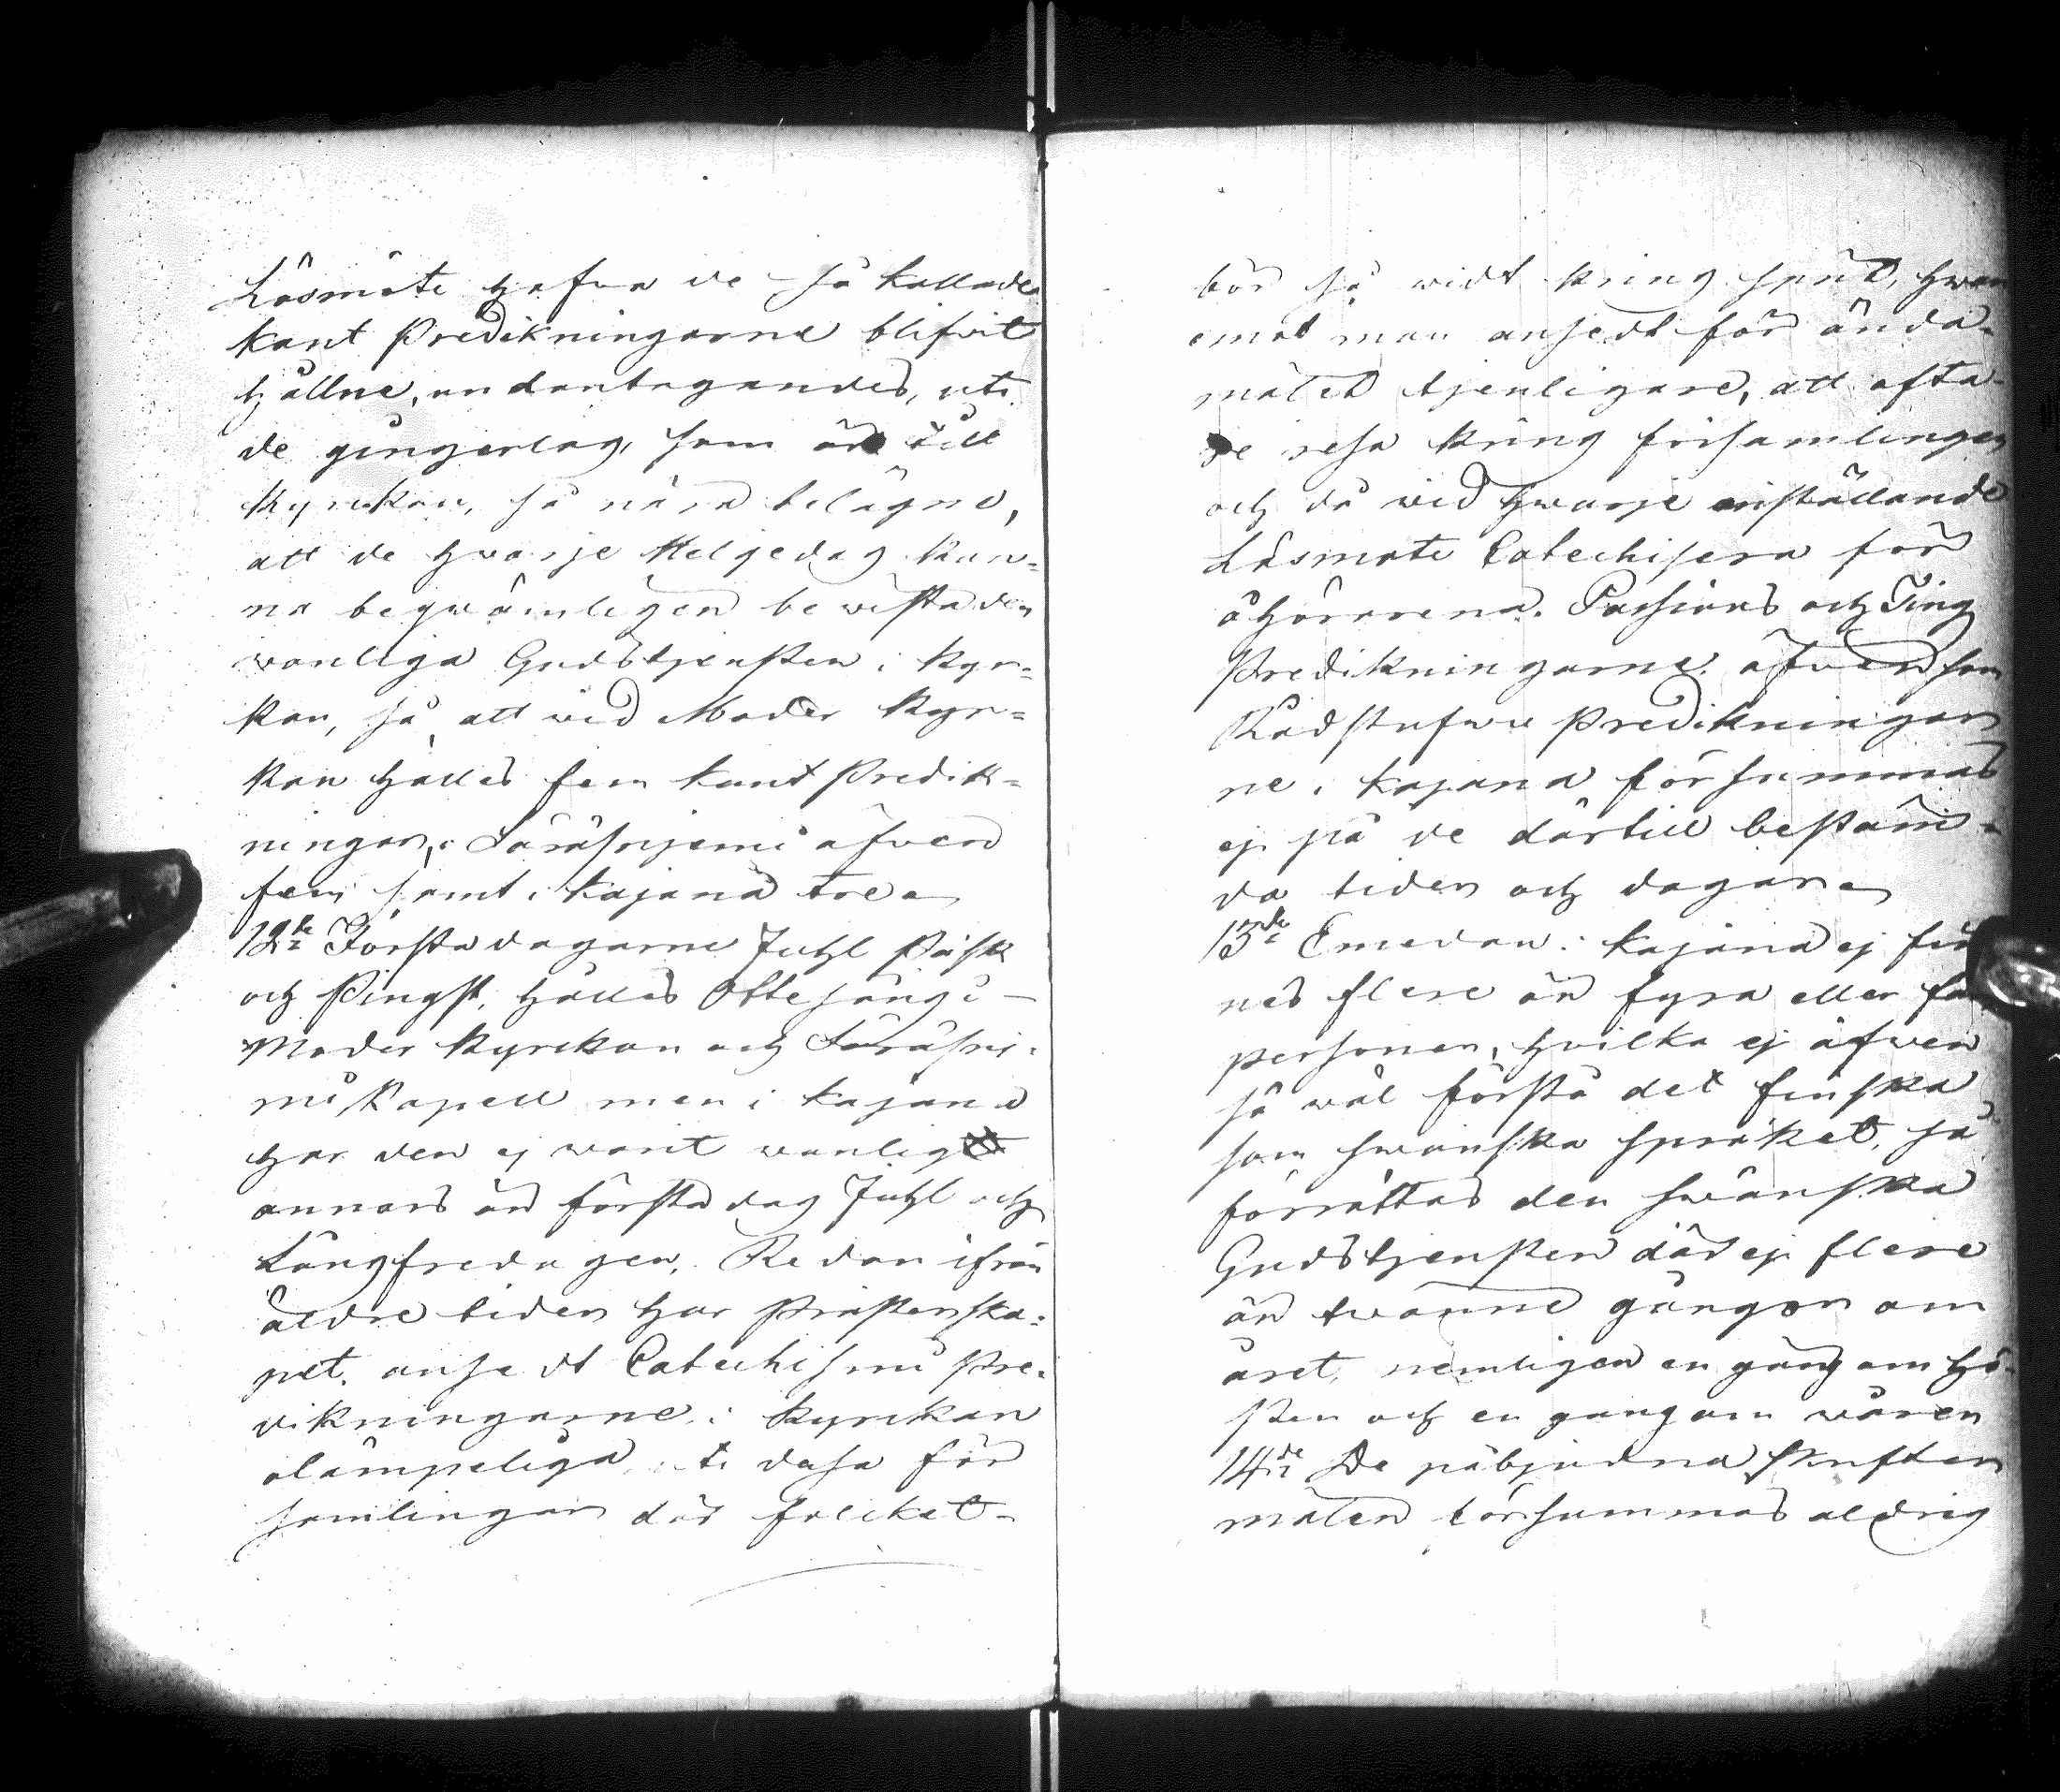 Läsmöte hafwa de så kallade
kant Predikningarne blifwit
hållne, undantagandes, uti
de gingerlag, som äre till
Kyrckan, så nära belägne,
att de hwarje Helgedag kun=
na beqwämligen bewista den
wanliga Gudstjensten i Kyr=
kan, så att wid Moder Kyr=
kan hålles fem kant Predik=
ningar, i Säräsniemi äfwen
fem samt i Kajana tre
12te Första dagarne Juhl Påsk
och Pingst, hålles Ottesång i
Moder Kyrckan och Säräsni=
mi Kapell men i Kajana
har den ej warit wanlig
annars än första dag Juhl och
Långfredagen. Redan ifrån
äldre tider har Prästerska=
pet ansedt Catechismi Pre=
dikningarne i Kyrckan
olämpeliga, uti dessa för
samlingar där folcket
bor så widt kring spridt, hwar
emot man ansedt för ända=
målet tjenligare, att ofta
re resa kring församlingen
och då wid hwarje anställande
Läsmöte Catechisera för
åhörarena. Passions och Ting
Predikningarne, äfwensom
Rådstufwu Predikningar
ne i Kajana försummas
ej på de därtill bestäm=
da tider och dagar
13de Emedan i Kajana ej fin
nes flere än fyra eller
personer, hwilka ej äfwen
så wäl förstå det finska
som swänska språket, så
förrättas den swänska
Gudstjensten där ej flere
än twänne gånger om
året, nemligen en gång om hö=
sten och en gång om wåren
14de De påbjudna Skriften
målen försummas aldrig